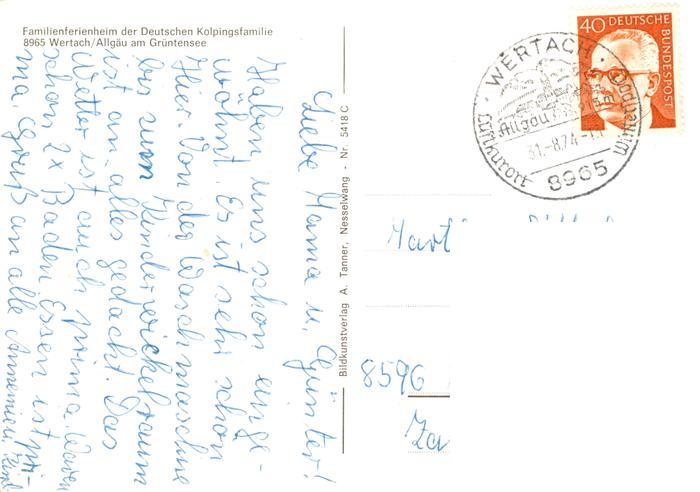 Familienferienheim der Deutschen Kolpingsfamilie
8965 Wertach/Allgäu am Grüntensee
Liebe Mama u. Günter!
Haben uns schon einge-
wöhnt. Es ist sehr schön
Hier. Von der Waschmaschine
bis zum Kinderwickelraum
ist an alles gedacht. Das
Wetter ist auch prima. Waren
schon 2x Baden. Essen ist pri-
ma. Gruß an alle Annemie u.
Bildkunstverlag A. Tanner, Nesselwang - Nr. 5418 C
40 DEUTSCHE
BUNDESPOST
WERTACH
Allgäu
31.-8.74
8965
Luftkurort
8596